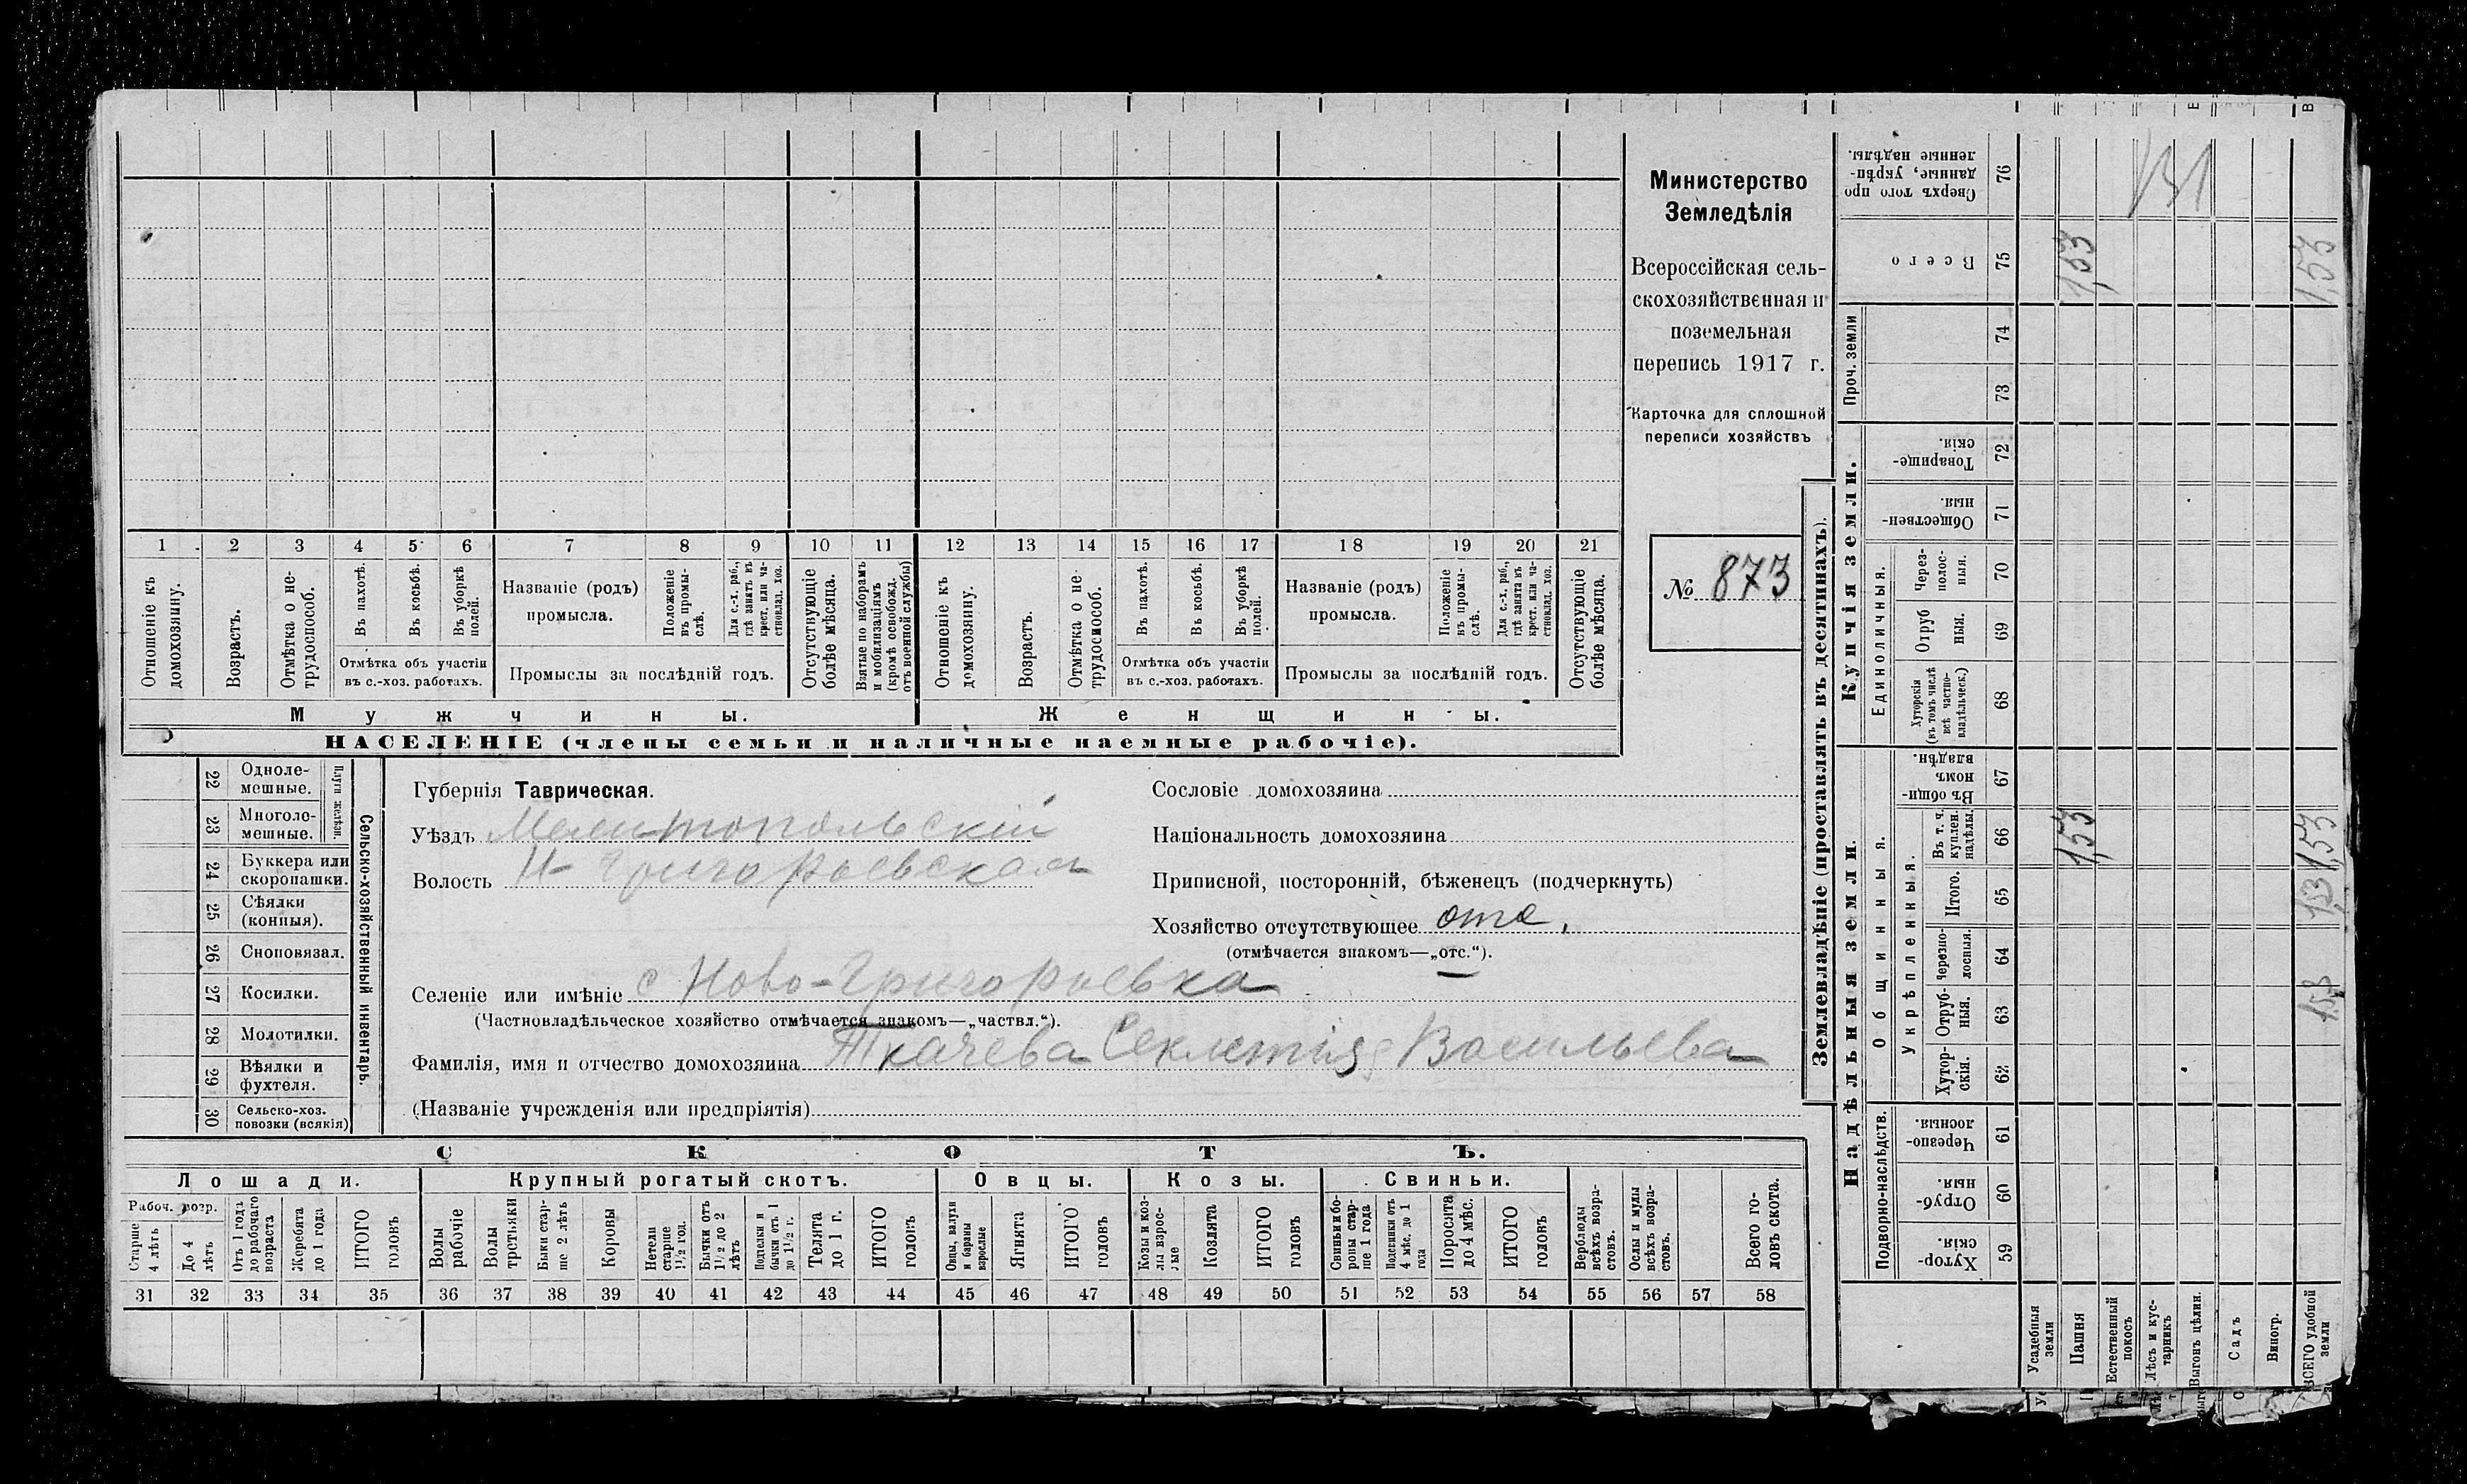 Министерство
Земледѣлія
Всероссійская сель-
скохозяйственная и
поземельная
перепись 1917 г.
Карточка для сплошной
переписи хозяйствъ
№ 873
1 2 3 4 5 6 7 8 9 10 11 12 13 14 15 16 17 18 19 20 21
Отношеніе къ домохозяину.
Возрастъ.
Отмѣтка о не-трудоспособ.
Въ пахотѣ.
Въ косьбѣ.
Въ уборкѣ полей.
Отмѣтка объ участіи
въ с.-хоз. работахъ.
Названіе (родъ)
промысла.
Положеніе въ промы-слѣ.
Для с.-х. раб., гдѣ занятъ въ крест. или ча-стновлад. хоз.
Промыслы за послѣдній годъ.
Отсутствующіе болѣе мѣсяца.
Взятые по наборамъ и мобилизаціямъ (кромѣ освобожд. отъ военной службы)
Отношеніе къ домохозяину.
Возрастъ.
Отмѣтка о не-трудоспособ.
Въ пахотѣ.
Въ косьбѣ.
Въ уборкѣ полей.
Отмѣтка объ участіи
въ с.-хоз. работахъ.
Названіе (родъ)
промысла.
Положеніе въ промы-слѣ.
Для с.-х. раб., гдѣ занята въ крест. или ча-стновлад. хоз.
Промыслы за послѣдній годъ.
Отсутствующіе болѣе мѣсяца.
Мужчины.
Женщины.
НАСЕЛЕНІЕ (члены семьи и наличные наемные рабочіе).
22 Одноле-мешные.
23 Многоле-мешные.
Плуги желѣзн.
24 Буккера или скоропашки.
25 Сѣялки (конныя).
26 Сноповязал.
27 Косилки.
28 Молотилки.
29 Вѣялки и фухтеля.
30 Сельско-хоз. повозки (всякія)
Сельско-хозяйственный инвентарь.
Губернія Таврическая.
Уѣздъ Мелитопольскій
Волость Н-Григорьевская
Сословіе домохозяина
Національность домохозяина
Приписной, посторонній, бѣженецъ (подчеркнуть)
Хозяйство отсутствующее отс.
(отмѣчается знакомъ—„отс.“).
Селеніе или имѣніе с Ново-Григорьевка
(Частновладѣльческое хозяйство отмѣчается знакомъ—„частвл.“).
Фамилія, имя и отчество домохозяина Ткачева Секлетія Васильева
(Названіе учрежденія или предпріятія)
СКОТЪ.
Лошади.
Крупный рогатый скотъ.
Овцы.
Козы.
Свиньи.
Рабоч. возр.
Старше 4 лѣтъ
До 4 лѣтъ
Отъ 1 года до рабочаго возраста
Жеребята до 1 года
ИТОГО головъ
Волы рабочіе
Волы третьяки
Быки стар-ше 2 лѣтъ
Коровы
Нетели старше 1½ год.
Бычки отъ 1½ до 2 лѣтъ
Подтелки и бычки отъ 1 до 1½ г.
Телята до 1 г.
ИТОГО головъ
Овцы, валухи и бараны взрослые
Ягнята
ИТОГО головъ
Козы и коз-лы взрос-лые
Козлята
ИТОГО головъ
Свиньи и бо-ровы стар-ше 1 года
Подсвинки отъ 4 мѣс. до 1 года
Поросята до 4 мѣс.
ИТОГО головъ
Верблюды всѣхъ возра-стовъ.
Ослы и мулы всѣхъ возра-стовъ.
Всего го-ловъ скота.
31 32 33 34 35 36 37 38 39 40 41 42 43 44 45 46 47 48 49 50 51 52 53 54 55 56 57 58
Землевладѣніе (проставлять въ десятинахъ).
Купчія земли.
Надѣльныя земли.
Проч. земли
Единоличныя.
Общинныя.
Укрѣпленныя.
Подворно-наслѣдств.
Сверхъ того про данные, укрѣп-ленные надѣлы. 76
Всего 75
74
73
Товарище-скія. 72
Обществен-ныя. 71
Через-полос-ныя. 70
Отруб ныя. 69
Хуторскія (въ томъ числѣ всѣ частно-владѣльческ.) 68
Въ общи-номъ владѣн. 67
Въ т. ч. куплен. надѣлы. 66
Итого. 65
Черезпо-лосныя. 64
Отруб-ныя. 63
Хутор-скія. 62
Черезпо-лосныя. 61
Отруб-ныя. 60
Хутор-скія. 59
Усадебныя земли
Пашня
Естественный покосъ
Лѣсъ и кус-тарникъ
Выгонъ цѣлин.
Садъ
Виногр.
ВСЕГО удобной земли
1,53
1,53
1,53
1,53